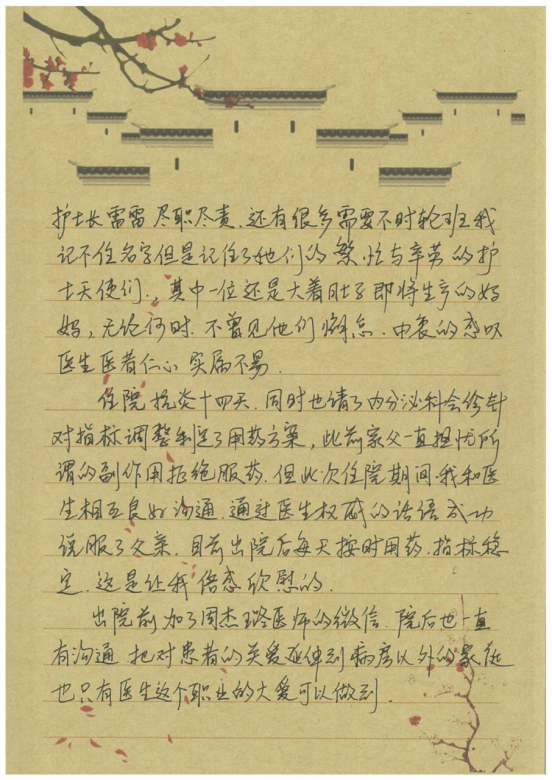 护士长雷雷尽职尽责.还有很多需要不时轮班我
记不住名字但是记住了他们的繁忙与辛劳的护
士天使们.其中一位还是大着肚子即将生产的妈
妈,无论何时.不曾见他们懈怠.由衷的感叹
医生医者仁心实属不易.
住院抗炎十四天.同时也请了内分泌科会诊针
对指标调整制定了用药方案,此前家父一直担忧所
谓的副作用拒绝服药.但此次住院期间.我和医
生相互良好沟通.通过医生权威的话语成功
说服了父亲.目前出院后每天按时用药.指标稳
定.这是让我倍感欣慰的.
出院前加了周杰璐医师的微信.院后也一直
有沟通.把对患者的关爱延伸到病房以外的家庭
也只有医生这个职业的大爱可以做到.